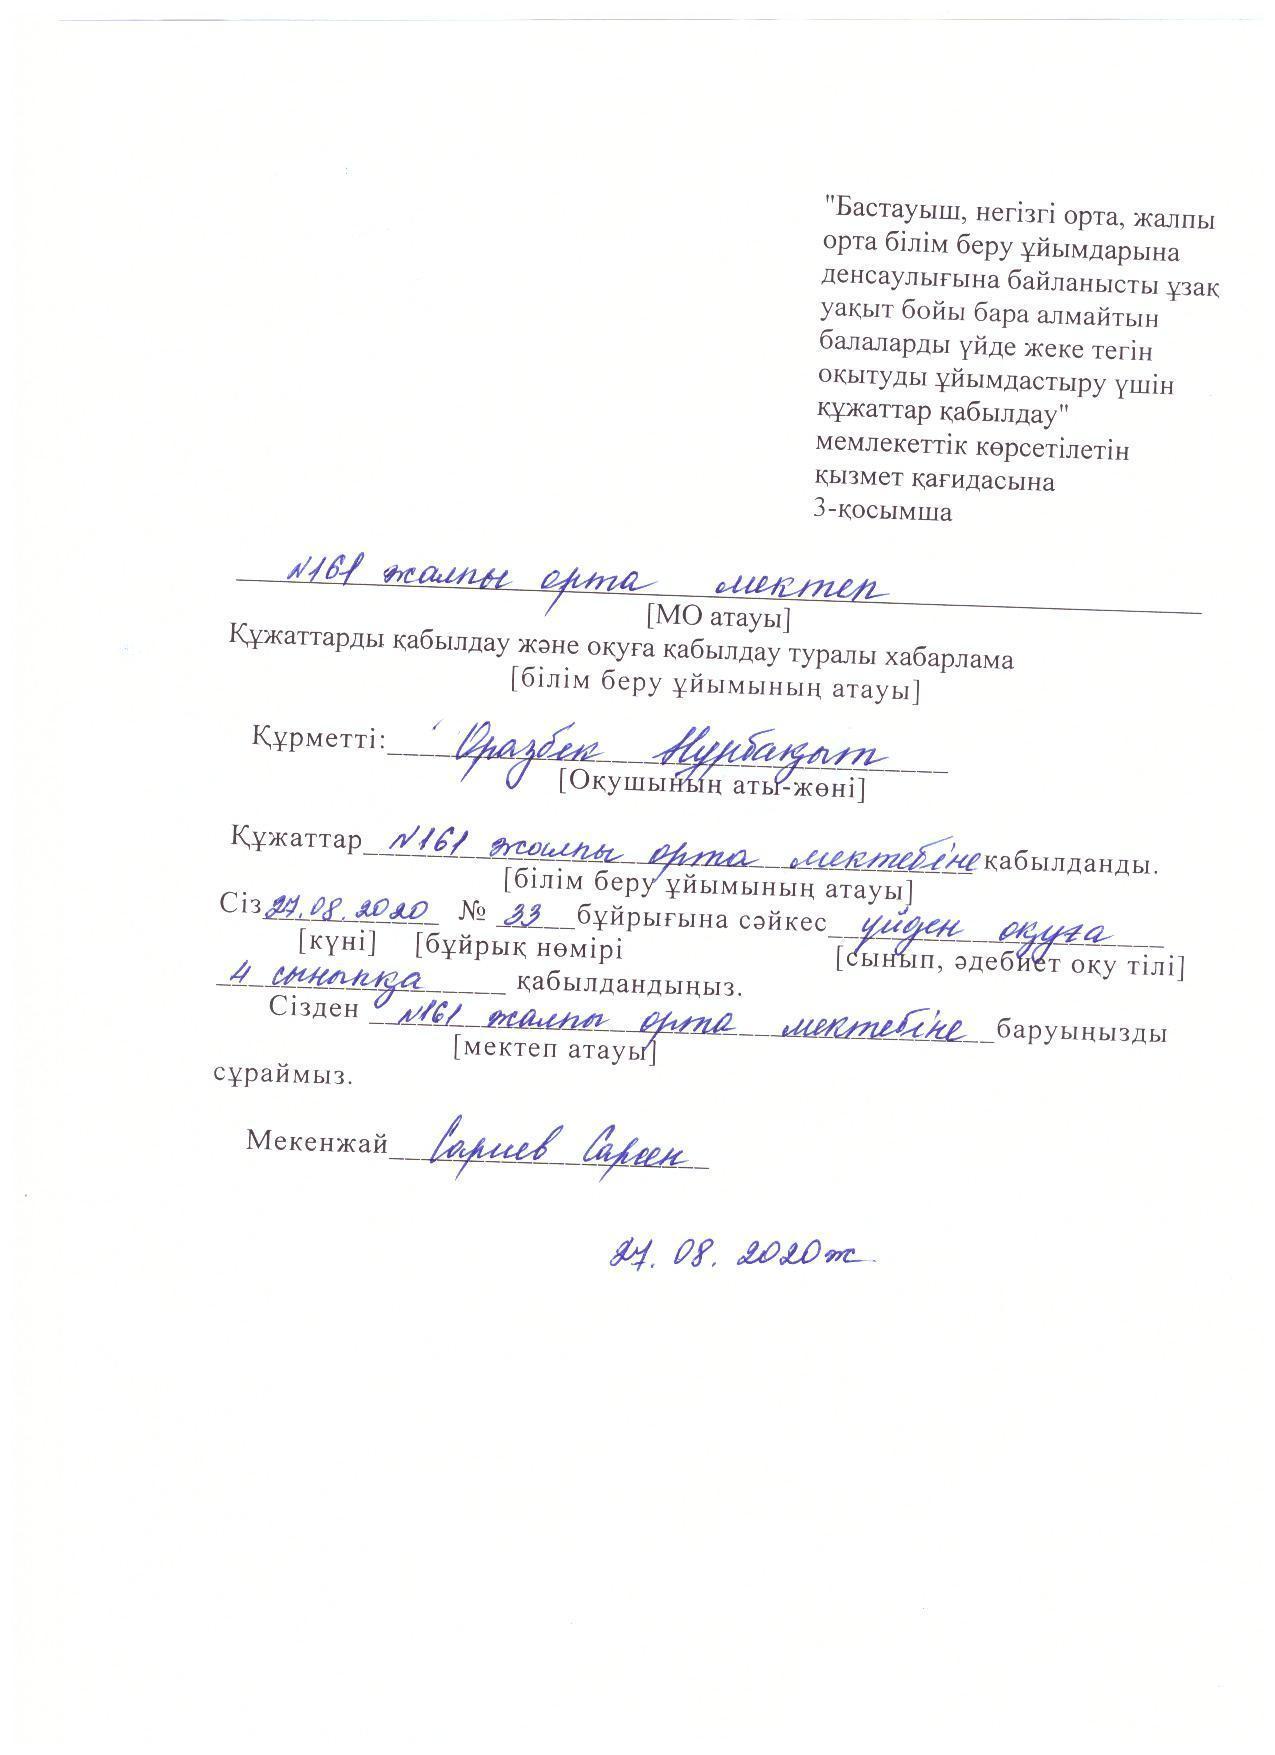 "Бастауыш, негізгі орта, жалпы
орта білім беру ұйымдарына
денсаулығына байланысты ұзақ
уақыт бойы бара алмайтын
балаларды үйде жеке тегін
оқытуды ұйымдастыру үшін
құжаттар қабылдау"
мемлекеттік көрсетілетін
қызмет қағидасына
3-қосымша
№161 жалпы орта мектеп
[МО атауы]
Құжаттарды қабылдау және оқуға қабылдау туралы хабарлама
[білім беру ұйымының атауы]
Құрметті: Оразбек Нұрбақыт
[Оқушының аты-жөні]
Құжаттар №161 жалпы орта мектебіне қабылданды.
[білім беру ұйымының атауы]
Сіз 27.08.2020 № 33 бұйрығына сәйкес үйден оқуға
[күні] [бұйрық нөмірі [сынып, әдебиет оқу тілі]
4 сыныпқа қабылдандыңыз.
Сізден №161 жалпы орта мектебіне баруыңызды
[мектеп атауы]
сұраймыз.
Мекенжай Сариев Сарсен
27.08.2020ж